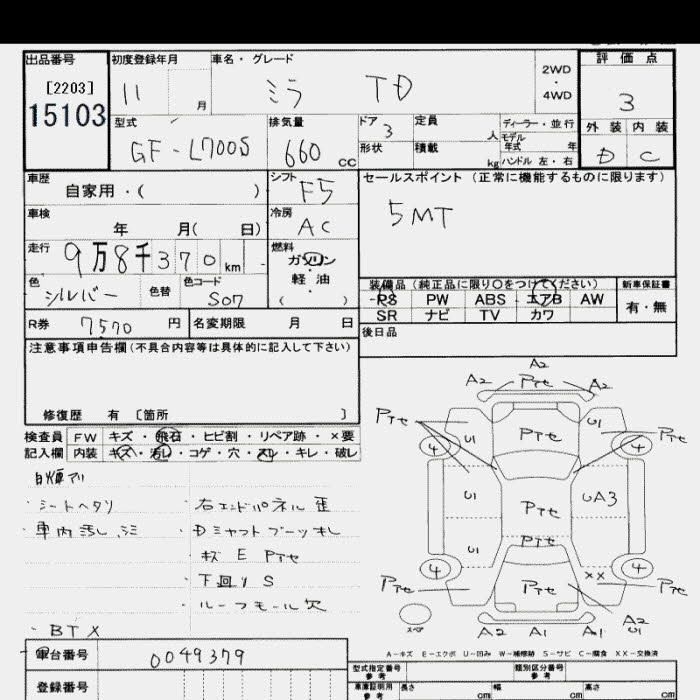 出品番号
[2203]
15103
初度登録年月
11 月
車名・グレード
ミラ TD
2WD
・
4WD
評価点
3
外装 内装
D C
型式
GF-L700S
排気量
660 cc
ドア
3
形状
定員
人
積載
kg
ディーラー・並行
モデル
年式 年
ハンドル 左・右
車歴
自家用・( )
シフト
F5
車検
年 月( 日)
冷房
AC
走行
9万8千370 km
燃料
ガソリン
軽油
( )
色
シルバー
色替
色コード
S07
R券 7570 円
名変期限 月 日
セールスポイント (正常に機能するものに限ります)
5MT
装備品(純正品に限り○をつけてください)
PS PW ABS エアB AW
SR ナビ TV カワ
新車保証書
有・無
後日品
注意事項申告欄(不具合内容等は具体的に記入して下さい)
修復歴 有 [箇所 ]
検査員
記入欄
FW キズ・飛石・ヒビ割・リペア跡・×要
内装 キズ・汚レ・コゲ・穴・スレ・キレ・破レ
・シートヘタリ
・車内汚レ、シミ
・右エンドパネル歪
・Dシャフトブーツキレ
・下回りS
・ルーフモール欠
・BTX
A2
A2 Pアセ A2
Pアセ U1 Pアセ U1 Pアセ
4 4
U1 Pアセ UA3
U1 Pアセ
4 4
Pアセ Pアセ ×× Pアセ
スペア
A2 A1 A1 A2
U1
A-キズ E-エクボ U-凹み W-補修跡 S-サビ C-腐食 XX-交換済
車台番号 0049379
登録番号
型式指定番号
参考
類別区分番号
参考
車庫証明用
参考
長さ cm
幅 cm
高さ cm